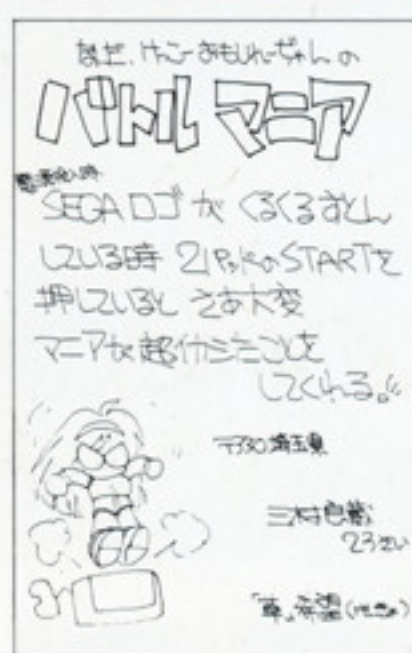 なぜ、けっこーおもしれーじゃんの
バトル マニア
電源投入時
SEGAロゴが くるくるすとん
している時 2PパッドのSTARTを
押していると さあ大変
マニアが超イカシたことを
してくれる。
〒330 埼玉県
三村
23さい
希望